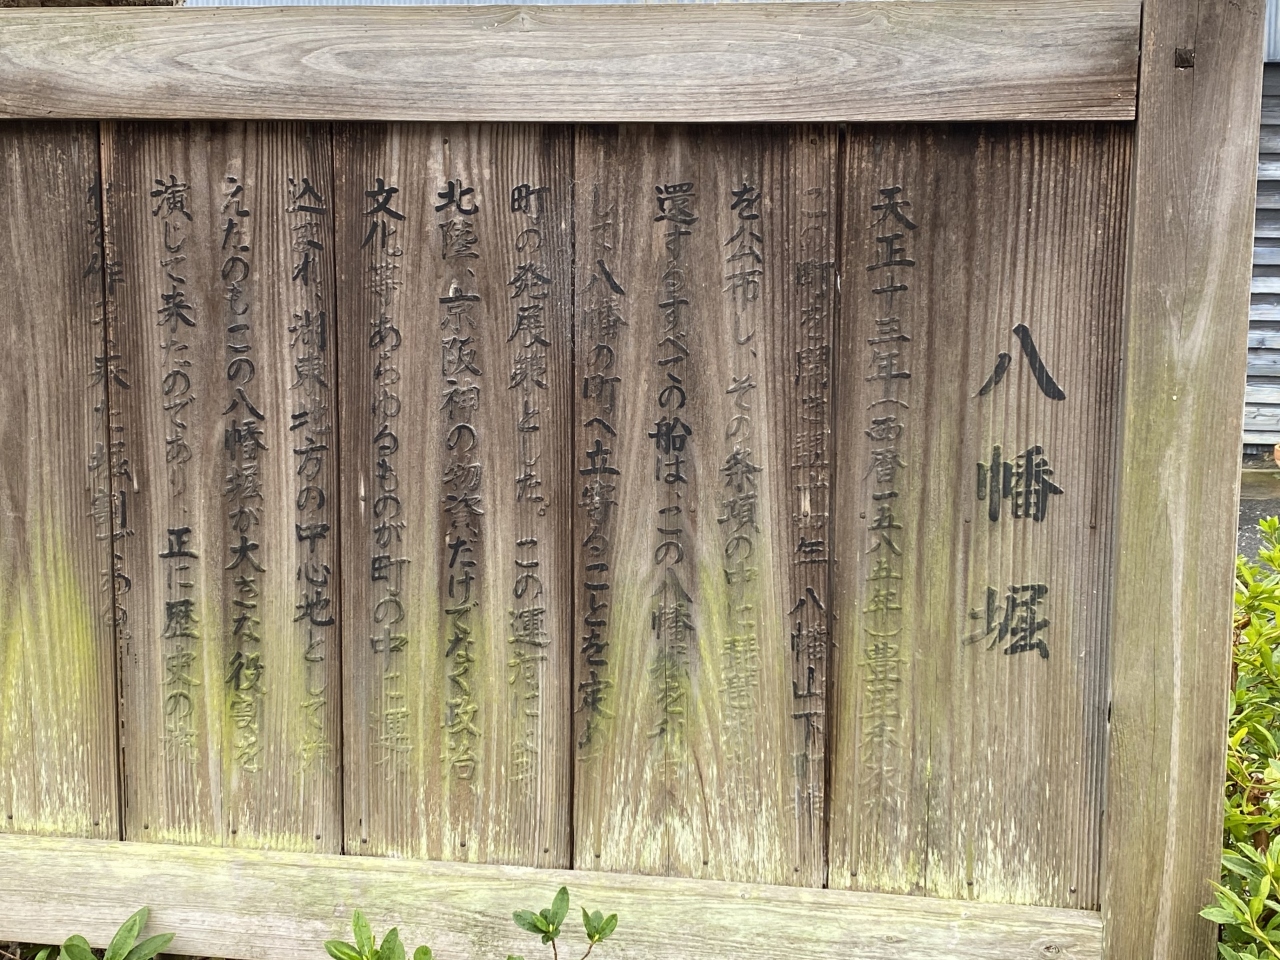 八幡堀
天正十三年（西暦一五八五年）豊臣秀次
この町を開き翌十四年八幡山下町
を公布し、その条項の中に琵琶湖
還するすべての船は、この八幡
して八幡の町へ立寄ることを定め
町の発展策とした。この運河によ
北陸、京阪神の物資だけでなく政治
文化等あらゆるものが町の中に運
込まれ、湖東地方の中心地として
えたのもこの八幡堀が大きな役割を
演じて来たのであり、正に歴史の
来た堀割である。